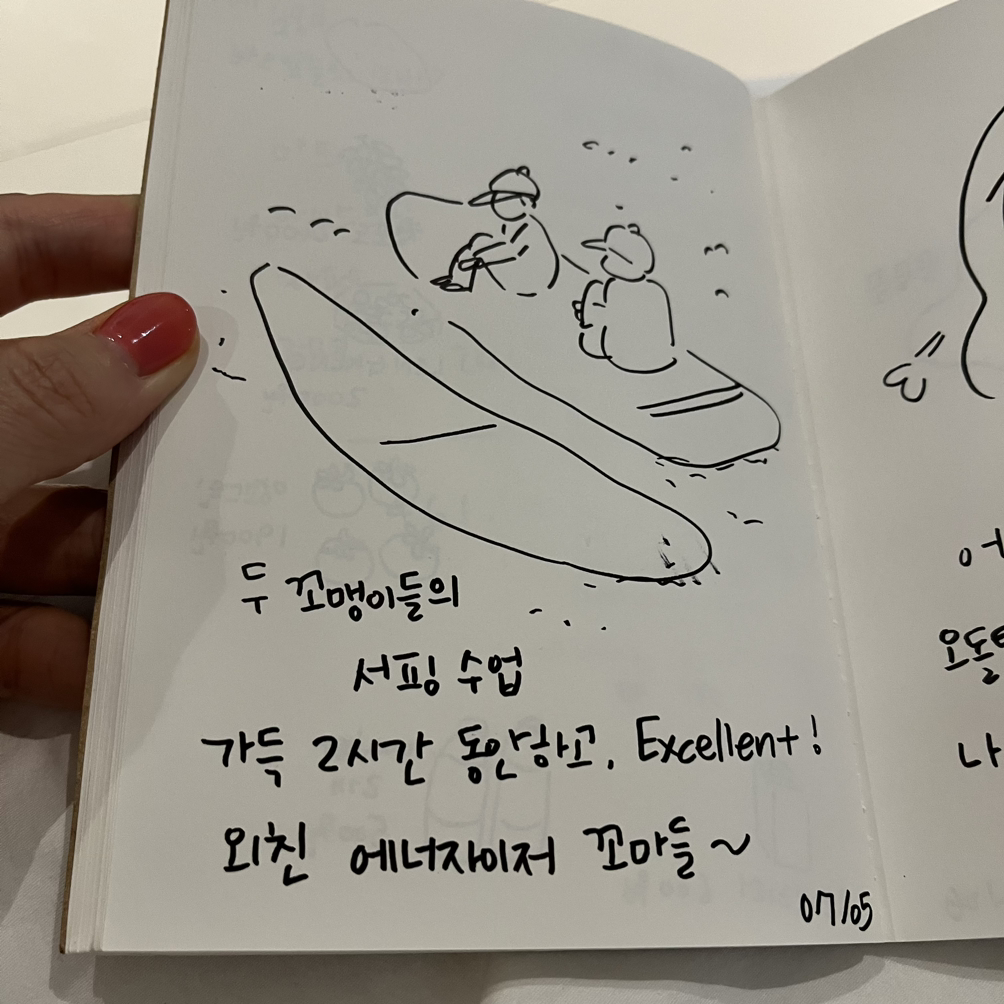 두 꼬맹이들의
서핑 수업
가득 2시간 동안하고, Excellent!
외친 에너자이저 꼬마들~
07/05
어
오돌
나